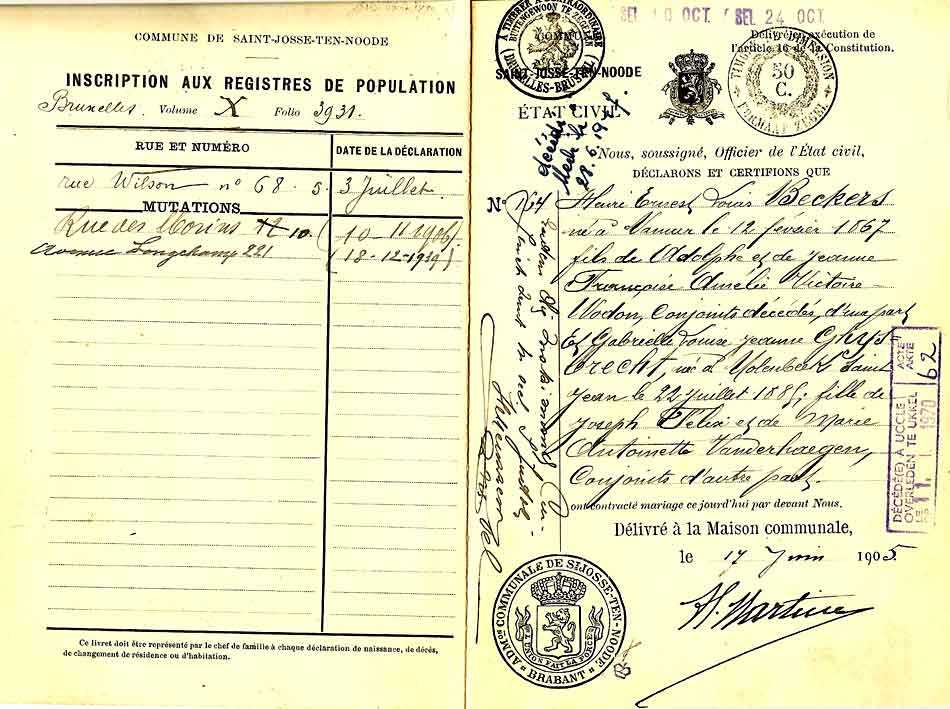 COMMUNE DE SAINT-JOSSE-TEN-NOODE
INSCRIPTION AUX REGISTRES DE POPULATION
Bruxelles. Volume X Folio 3931.
RUE ET NUMÉRO DATE DE LA DÉCLARATION
rue Wilson n° 68. 5. 3 Juillet.
MUTATIONS
Rue des 10. (10-11-1906)
Avenue Longchamp 221 (18-12-1939)
Ce livret doit être représenté par le chef de famille à chaque déclaration de naissance, de décès,
de changement de résidence ou d'habitation.
A TIMBRER A L'EXTRAORDINAIRE
BUITENGEWOON TE ZEGELEN
(BRUXELLES-BRUSSEL)
SEL 10 OCT. SEL 24 OCT.
COMMUNE
SAINT-JOSSE-TEN-NOODE
ÉTAT CIVIL
Délivré en exécution de
l'article 16 de la Constitution.
TIMBRE DIMENSION
50
C.
FORMAAT ZEGEL
décédé à
28.6.1947.
Nous, soussigné, Officier de l'État civil,
DÉCLARONS ET CERTIFIONS QUE
N° 164 Henri Ernest Louis Beckers
né à Namur le 12 février 1867
fils de Adolphe et de Jeanne
Françoise Amélie Victoire
Wodon, conjoints décédés, d'une part
Et Gabrielle Louise Jeanne Ghys
brecht, née à Molenbeek Saint
Jean le 22 juillet 1885; fille de
Joseph Félix et de Marie
Antoinette Vanderhaegen,
Conjoints d'autre part.
ont contracté mariage ce jourd'hui par devant Nous.
Délivré à la Maison communale,
le 17 Juin 1905
DÉCÉDÉ(E) À UCCLE
OVERLEDEN TE UKKEL
LE 11. 1. 1970
ACTE
AKTE 62
ADMON COMMUNALE DE ST JOSSE-TEN-NOODE
L'UNION FAIT LA FORCE
BRABANT